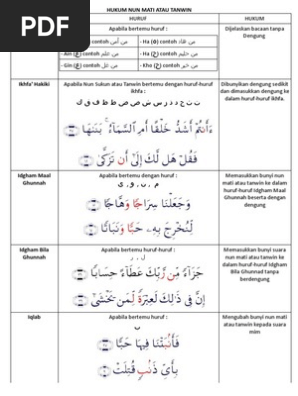 PDF
HUKUM NUN MATI ATAU TANWIN
HURUF HUKUM
Apabila bertemu dengan huruf : Dijelaskan bacaan tanpa Dengung
contoh من - Ha (ه) contoh من
- Ain (ع) contoh من - Ha (ح) contoh من
- Gin (غ) contoh من - Kho (خ) contoh من
Ikhfa' Hakiki
Apabila Nun Sukun atau Tanwin bertemu dengan huruf-huruf ikhfa :
ت ث ج د ذ ز س ش ص ض ط ظ ف ق ك
ءَأَنتُمْ أَشَدُّ خَلْقًا أَمِ ٱلسَّمَآءُ ۚ بَنَىٰهَا
فَقُلْ هَل لَّكَ إِلَىٰٓ أَن تَزَكَّىٰ
Dibunyikan dengung sedikit dan dimasukan dengung ke dalam huruf-huruf Ikhfa.
Idgham Maal Ghunnah
Apabila bertemu dengan huruf :
م , ن , و , ي
وَجَعَلْنَا سِرَاجًا وَهَّاجًا
لِّنُخْرِجَ بِهِۦ حَبًّا وَنَبَاتًا
Memasukkan bunyi nun mati atau tanwin ke dalam huruf-huruf Idgham Maal Ghunnah beserta dengan dengung
Idgham Bila Ghunnah
Apabila bertemu huruf-huruf :
ر , ل
جَزَآءً مِّن رَّبِّكَ عَطَآءً حِسَابًا
إِنَّ فِى ذَٰلِكَ لَعِبْرَةً لِّمَن يَخْشَىٰٓ
Memasukkan bunyi suara nun mati atau tanwin ke dalam huruf-huruf Idgham Bila Ghunnah tanpa berdengung
Iqlab
Apabila bertemu huruf :
ب
فَأَنۢبَتْنَا فِيهَا حَبًّا
بِأَىِّ ذَنۢبٍ قُتِلَتْ
Mengubah bunyi nun mati atau tanwin kepada suara mim